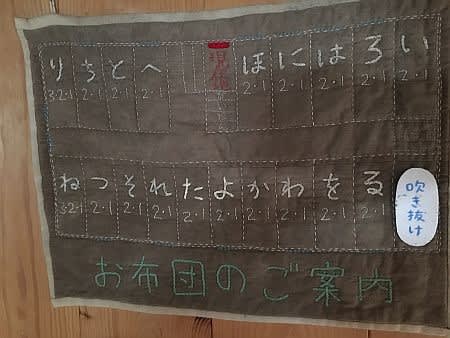 り ち と へ ほ に は ろ い
3・2・1 2・1 2・1 2・1 2・1 2・1 2・1 2・1
ね つ そ れ た よ か わ を る
3・2・1 2・1 2・1 2・1 2・1 2・1 2・1 2・1 2・1 2・1
吹き抜け
お布団のご案内